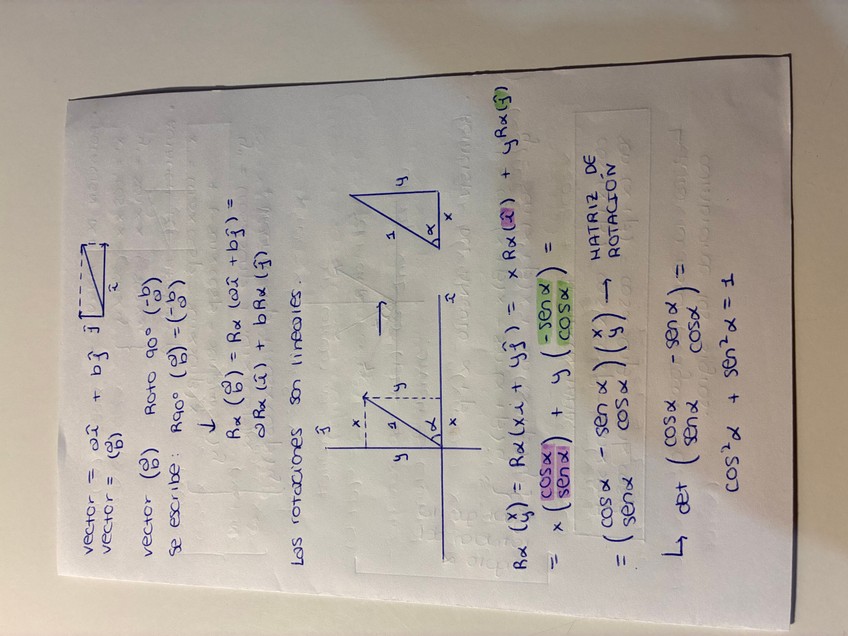 vector = aî + bĵ
ĵ
î
vector = (a b)
vector (a b) Roto 90° (-b a)
se escribe: R90° (a b) = (-b a)
↓
Rα (a b) = Rα (aî + bĵ) =
aRα(î) + bRα(ĵ)
Las rotaciones son lineales.
ĵ
x
y 1 y
α
x
î
→
1 y
α
x
Rα (x y) = Rα(xî + yĵ) = xRα(î) + yRα(ĵ)
= x (cosα senα) + y (-senα cosα) =
= (cosα -senα
senα cosα) (x y) → MATRIZ DE
ROTACIÓN
↳ det (cosα -senα
senα cosα) =
cos²α + sen²α = 1